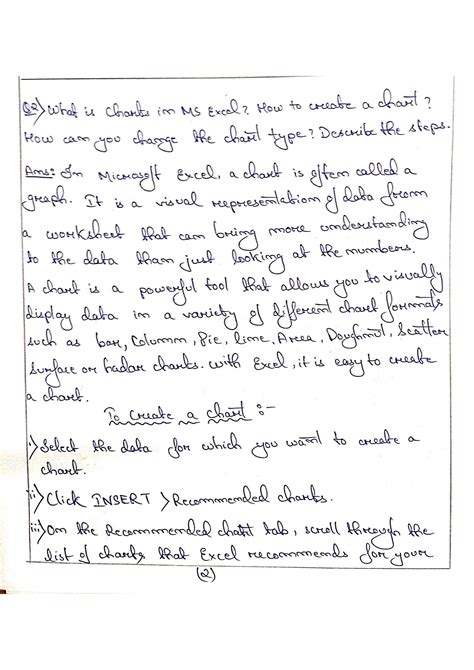 Q2) What is Charts in MS Excel? How to create a chart?
How can you change the chart type? Describe the steps.
Ans: In Microsoft Excel, a chart is often called a
graph. It is a visual representation of data from
a worksheet that can bring more understanding
to the data than just looking at the numbers.
A chart is a powerful tool that allows you to visually
display data in a variety of different chart formats
such as bar, Column, Pie, line, Area, Doughnut, Scatter
Surface or hadar charts. with Excel, it is easy to create
a chart.
To Create a chart :-
i) Select the data for which you want to create a
chart.
ii) Click INSERT > Recommended charts.
iii) On the Recommended chart tab, scroll through the
list of charts that Excel recommends for your
(2)